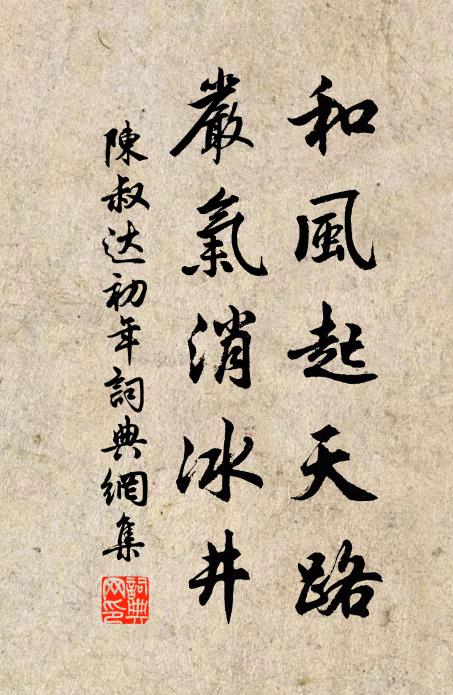 和風起天路
嚴氣消冰井
陳叔达初年詞典網集
詞典网印